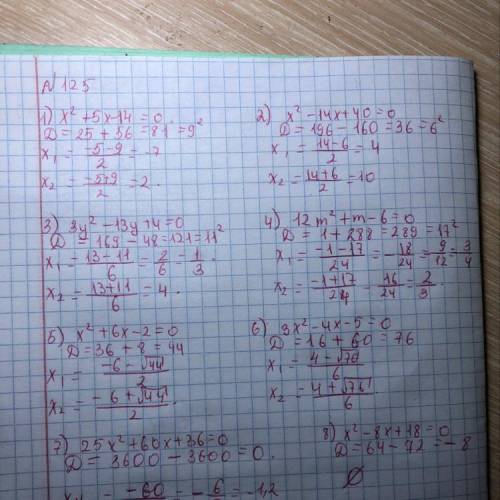 № 125
1) x² + 5x - 14 = 0
D = 25 + 56 = 81 = 9²
x₁ = (-5-9)/2 = -7
x₂ = (-5+9)/2 = 2.
2) x² - 14x + 40 = 0
D = 196 - 160 = 36 = 6²
x₁ = (14-6)/2 = 4
x₂ = (14+6)/2 = 10
3) 3y² - 13y + 4 = 0
D = 169 - 48 = 121 = 11²
x₁ = (13-11)/6 = 2/6 = 1/3
x₂ = (13+11)/6 = 4.
4) 12m² + m - 6 = 0
D = 1 + 288 = 289 = 17²
x₁ = (-1-17)/24 = -18/24 = 9/12 = 3/4
x₂ = (-1+17)/24 = 16/24 = 2/3.
5) x² + 6x - 2 = 0
D = 36 + 8 = 44
x₁ = (-6-√44)/2
x₂ = (-6+√44)/2.
6) 3x² - 4x - 5 = 0
D = 16 + 60 = 76
x₁ = (4-√76)/6
x₂ = (4+√76)/6.
7) 25x² + 60x + 36 = 0
D = 3600 - 3600 = 0.
-60 = -6 = -1,2
8) x² - 8x + 18 = 0
D = 64 - 72 = -8
∅